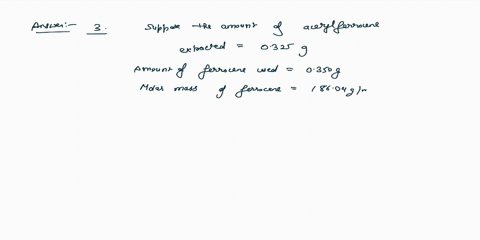 Answer:- 3. Suppose the amount of acetylferrocene
extracted = 0.325 g
Amount of ferrocene used = 0.350 g
Molar mass of ferrocene = 186.04 g/m